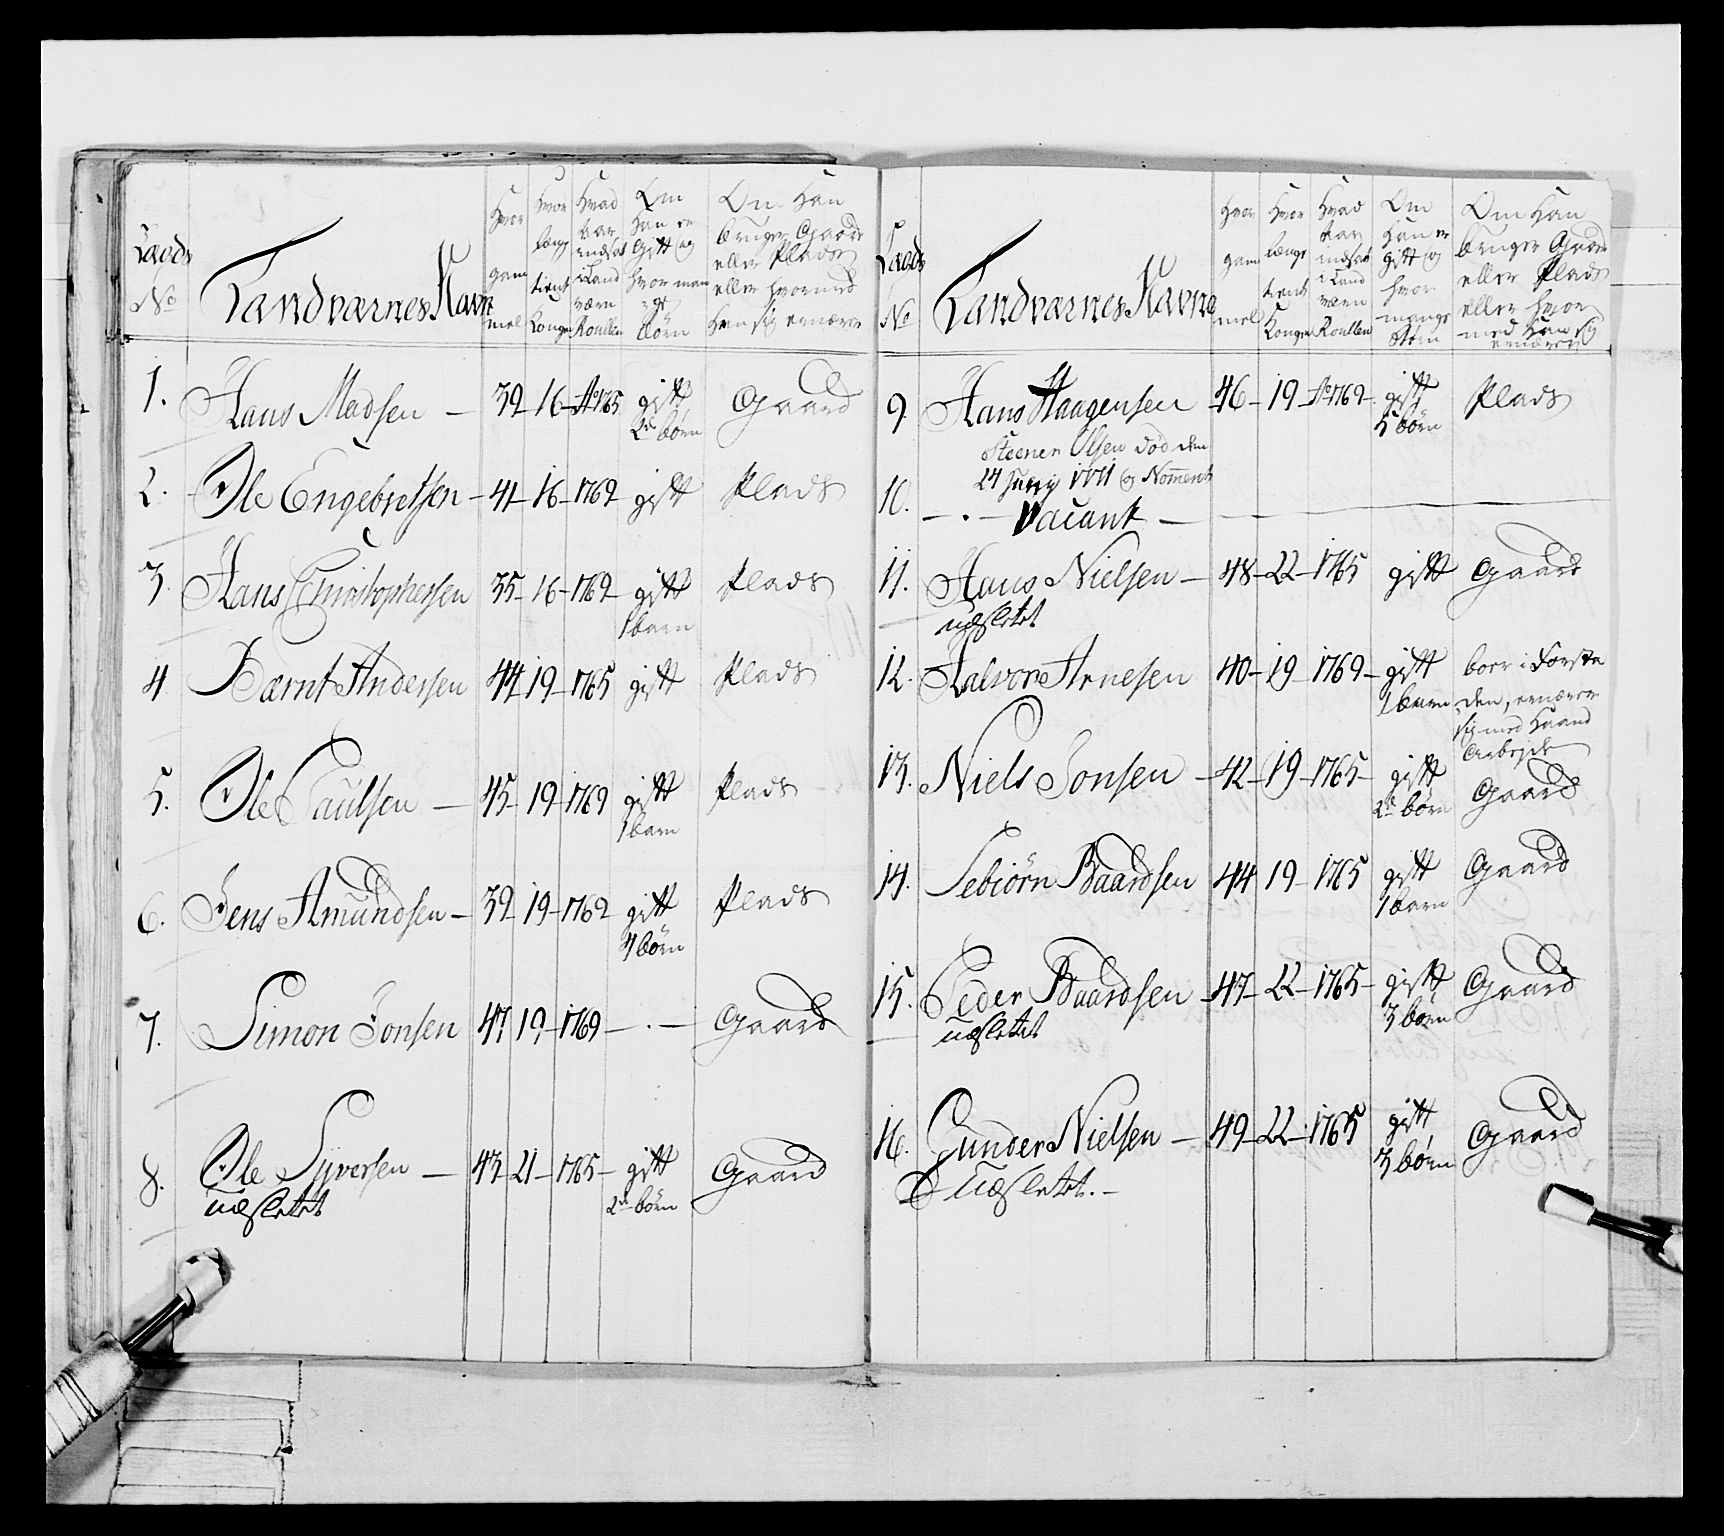 Laods No
Landværnes Navne
Hvor gammel
Hvor længe tient Kongen
Hvad Aar indsat i Land værn Roullen
Om Han er Gift og hvor mange Børn
Om Han bruger Gaard eller Plads eller hvormed Han sig ernærer
1. Hans Madsen — 39 - 16 - Ao 1765 gift 2de børn Gaard
2. Ole Engebretsen - 41 - 16 - 1769 gift Plads
3. Hans Christophersen 35 - 16 - 1769 - gift 1 barn Plads
4 Bærnt Andersen 44 - 19 - 1765 gift Plads
5. Ole Paulsen — 45 - 19 - 1769 gift 1 barn Plads
6. Jens Amundsen - 39 - 19 - 1769 gift 4 børn Plads
7. Simon Jonsen 47 19 - 1769 - . - Gaard
8. Ole Syversen — 43 - 21 - 1765 - gift 2de børn Gaard
udsletet
Laods No
Landværnes Navne
Hvor gammel
Hvor længe tient Kongen
Hvad Aar indsat i Land værn Roullen
Om Han er gift og hvor mange Børn
Om Han bruger Gaard eller Plads eller hvor med Han sig ernærer
9. Hans Haagensen 46 - 19 - Ao 1769 - gift 5 børn Plads
Steener Olsen død den
24 Junij 1771 og Noment
10. - . - Vacant —
11. Hans Nielsen - 48 - 22 - 1765 gift Gaard
udsletet
12. Halvor Arnesen 40 - 19 1769 - gift 1 barn boer i Forsta
den, ernærer
sig med Haand
Arbejde
13. Niels Jonsen - 42 - 19 - 1765 - gift 2de børn Gaard
14. Sebiörn Baardsen 44 19 - 1765 gift 1 barn Gaard
15. Peder Baardsen - 47 - 22 - 1765 - gift 3 børn Gaard
udsletet
16. Gunder Nielsen - 49 - 22 - 1765 gift 3 børn Gaard
udsletet. -